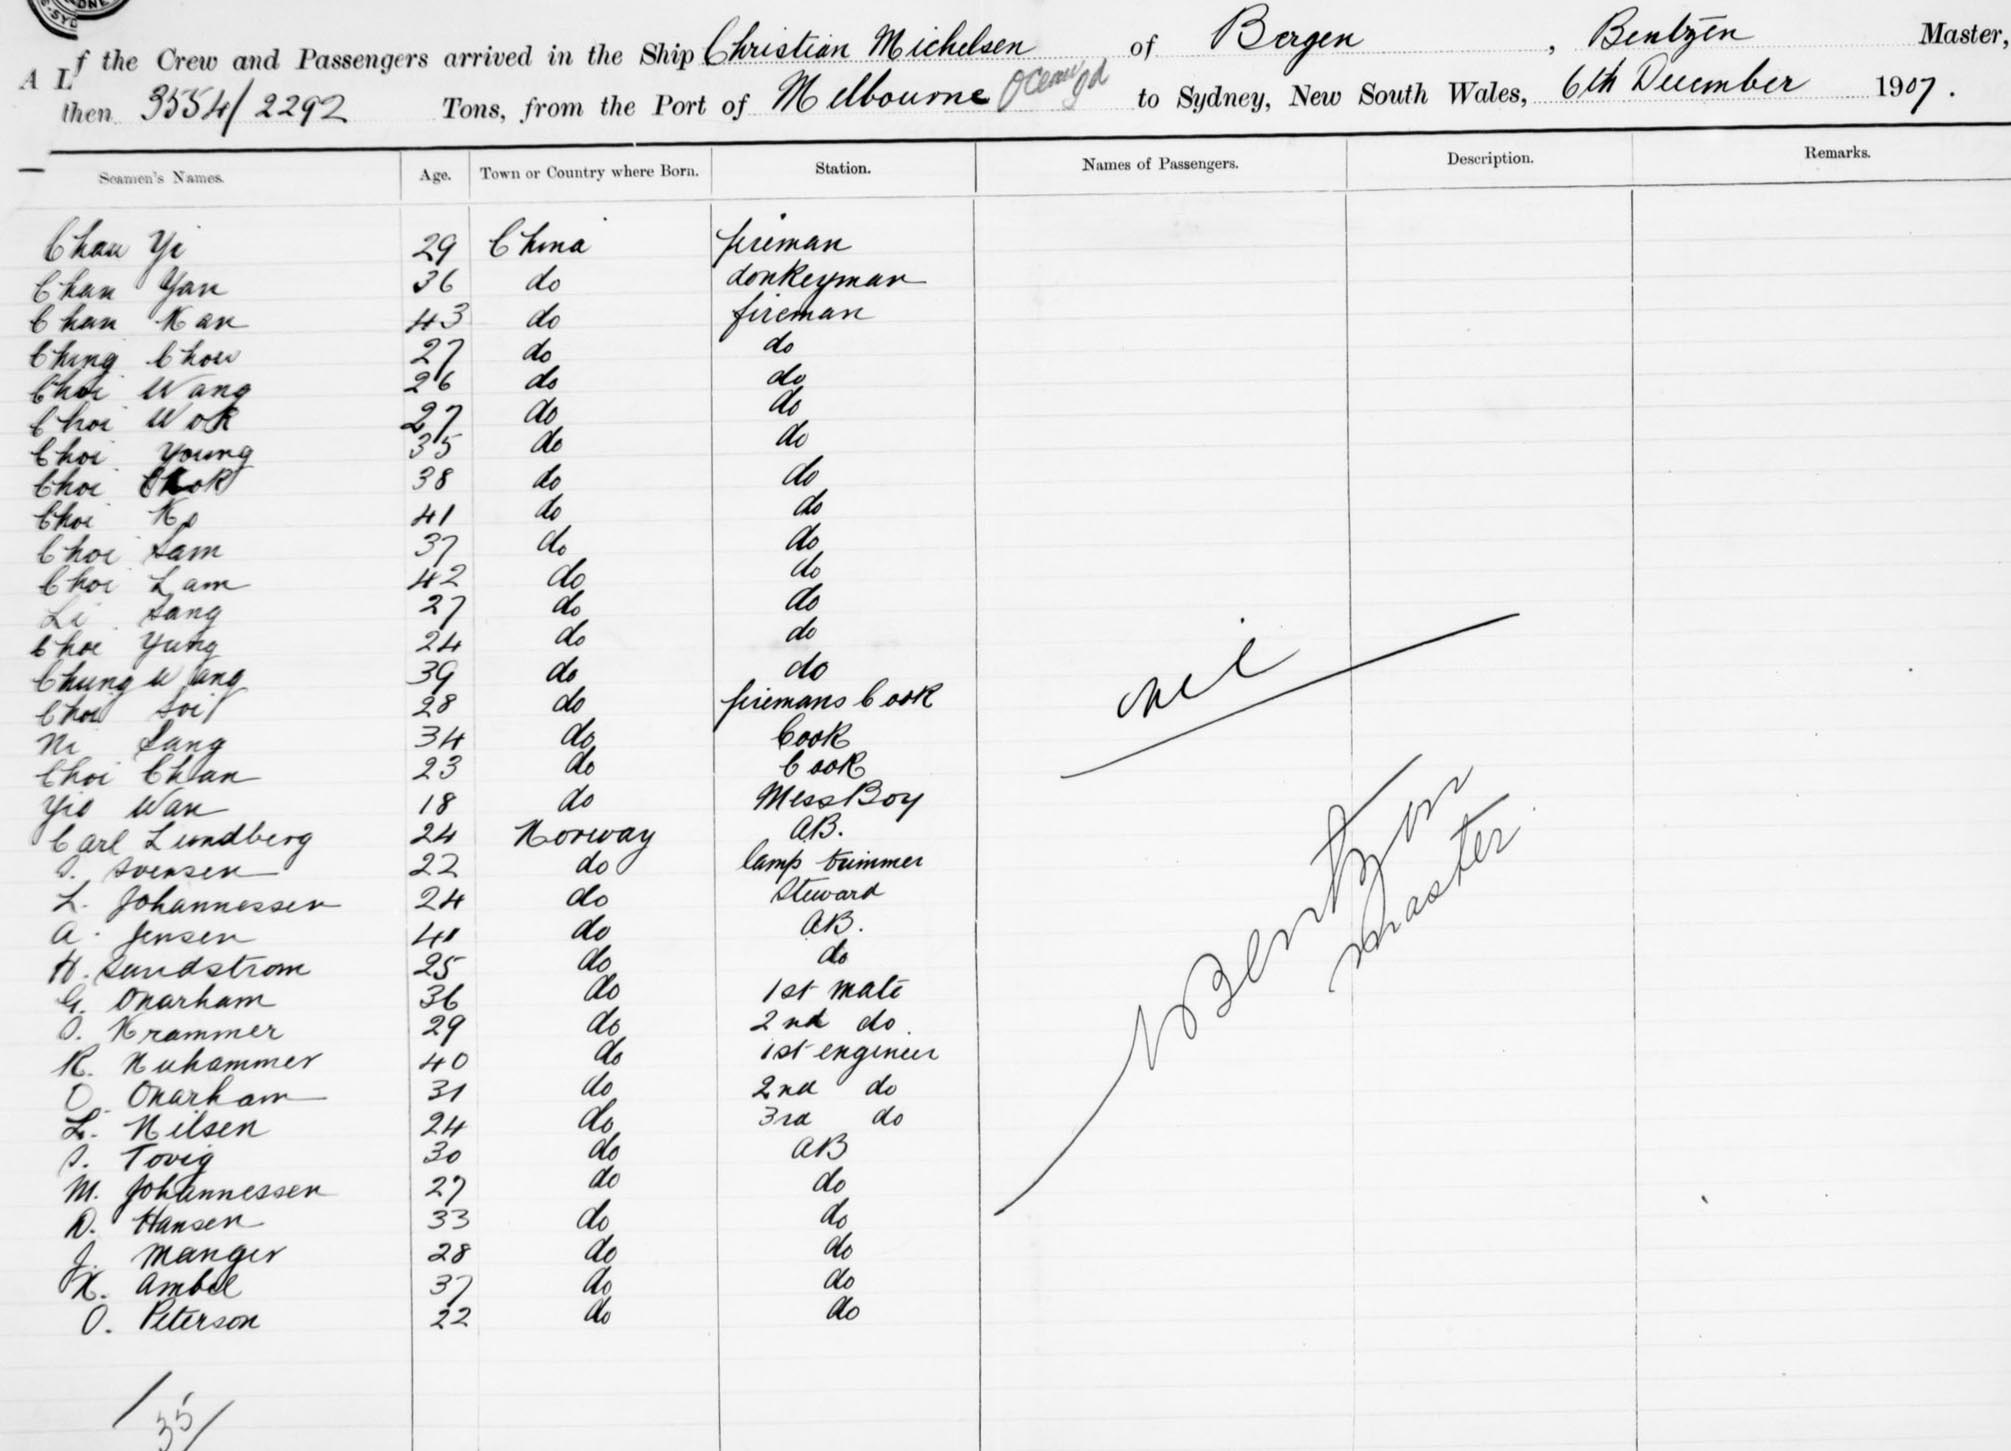 A L f the Crew and Passengers arrived in the Ship Christian Michelsen of Bergen, Bentzen Master,
then 3554/2292 Tons, from the Port of Melbourne to Sydney, New South Wales, 6th December 1907.
Seamen's Names. Age. Town or Country where Born. Station. Names of Passengers. Description. Remarks.
Chau Yi 29 China fireman
Chan Yan 36 do donkeyman
Chan Kan 43 do fireman
Ching Chow 27 do do
Choi Wang 26 do do
Choi Wok 27 do do
Choi Young 35 do do
Choi 38 do do
Choi Ko 41 do do
Choi Sam 37 do do
Choi Lam 42 do do
Li Sang 27 do do
Choi Yung 24 do do
Chung Wang 39 do do
Choi Soi 28 do firemans Cook
Ni Sang 34 do Cook
Choi Chan 23 do Cook
Yio Wan 18 do Mess Boy
Carl Lundberg 24 Norway AB.
S. Svensen 22 do lamp trimmer
L. Johannessen 24 do Steward
A. Jensen 41 do AB.
H. Sundstrom 25 do do
G. Onarham 36 do 1st mate
O. Krammer 29 do 2nd do.
R. Nuhammer 40 do 1st engineer
O. Onarham 31 do 2nd do
L. Nilsen 24 do 3rd do
S. Tovig 30 do AB
M. Johannessen 27 do do
D. Hansen 33 do do
J. Manger 28 do do
K. Ambel 37 do do
O. Peterson 22 do do
nil
Bentzon
Master
35